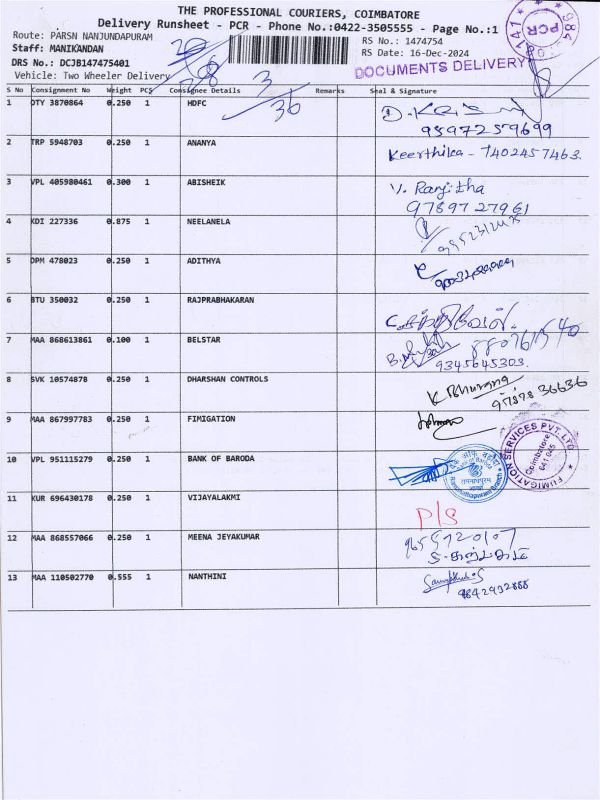 THE PROFESSIONAL COURIERS, COIMBATORE
Delivery Runsheet - PCR - Phone No.:0422-3505555 - Page No.:1
Route: PARSN NANJUNDAPURAM
RS No.: 1474754
Staff: MANIKANDAN
RS Date: 16-Dec-2024
DRS No.: DCJB147475401
DOCUMENTS DELIVERY
PCR
Vehicle: Two Wheeler Delivery
3
36
S No Consignment No Weight PCS Consignee Details Remarks Seal & Signature
1 DTY 3870864 0.250 1 HDFC
9597259699
2 TRP 5948703 0.250 1 ANANYA
Keerthika - 7402457463.
3 VPL 405980461 0.300 1 ABISHEIK
V. Ranjitha
9789727961
4 KDI 227336 0.875 1 NEELANELA
5 DPM 478023 0.250 1 ADITHYA
6 BTU 350032 0.250 1 RAJPRABHAKARAN
7 MAA 868613861 0.100 1 BELSTAR
9345645303.
8 SVK 10574878 0.250 1 DHARSHAN CONTROLS
K Bhuvana
9 MAA 867997783 0.250 1 FIMIGATION
FUMIGATION SERVICES PVT. LTD.
Coimbatore
641 045
10 VPL 951115279 0.250 1 BANK OF BARODA
11 KUR 696430178 0.250 1 VIJAYALAKMI
P/S
12 MAA 868557066 0.250 1 MEENA JEYAKUMAR
13 MAA 110502770 0.555 1 NANTHINI